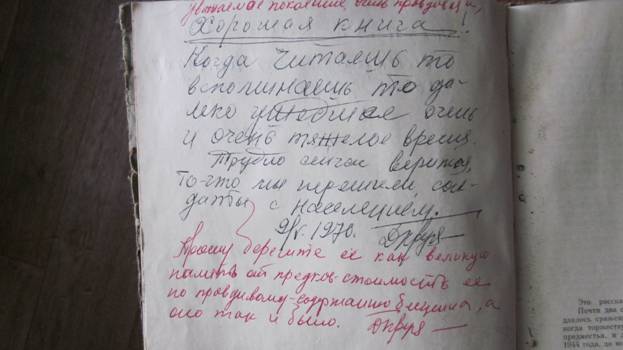 уважаемое поколение, очень правдивая
Хорошая книга!
Когда читаешь то
вспоминаешь то да-
леко очень
и очень тяжелое время.
Трудно сейчас верится,
то-что мы пережили, сол-
даты с населением.
9/V.1970.
Прошу берегите ее как великую
память от предков-стоимость ее
по правдивому-содержанию бесценна, а
оно так и было.
Это расска
Почти два
далось сражен
когда торжеству
предместья, и д
1944 года, до